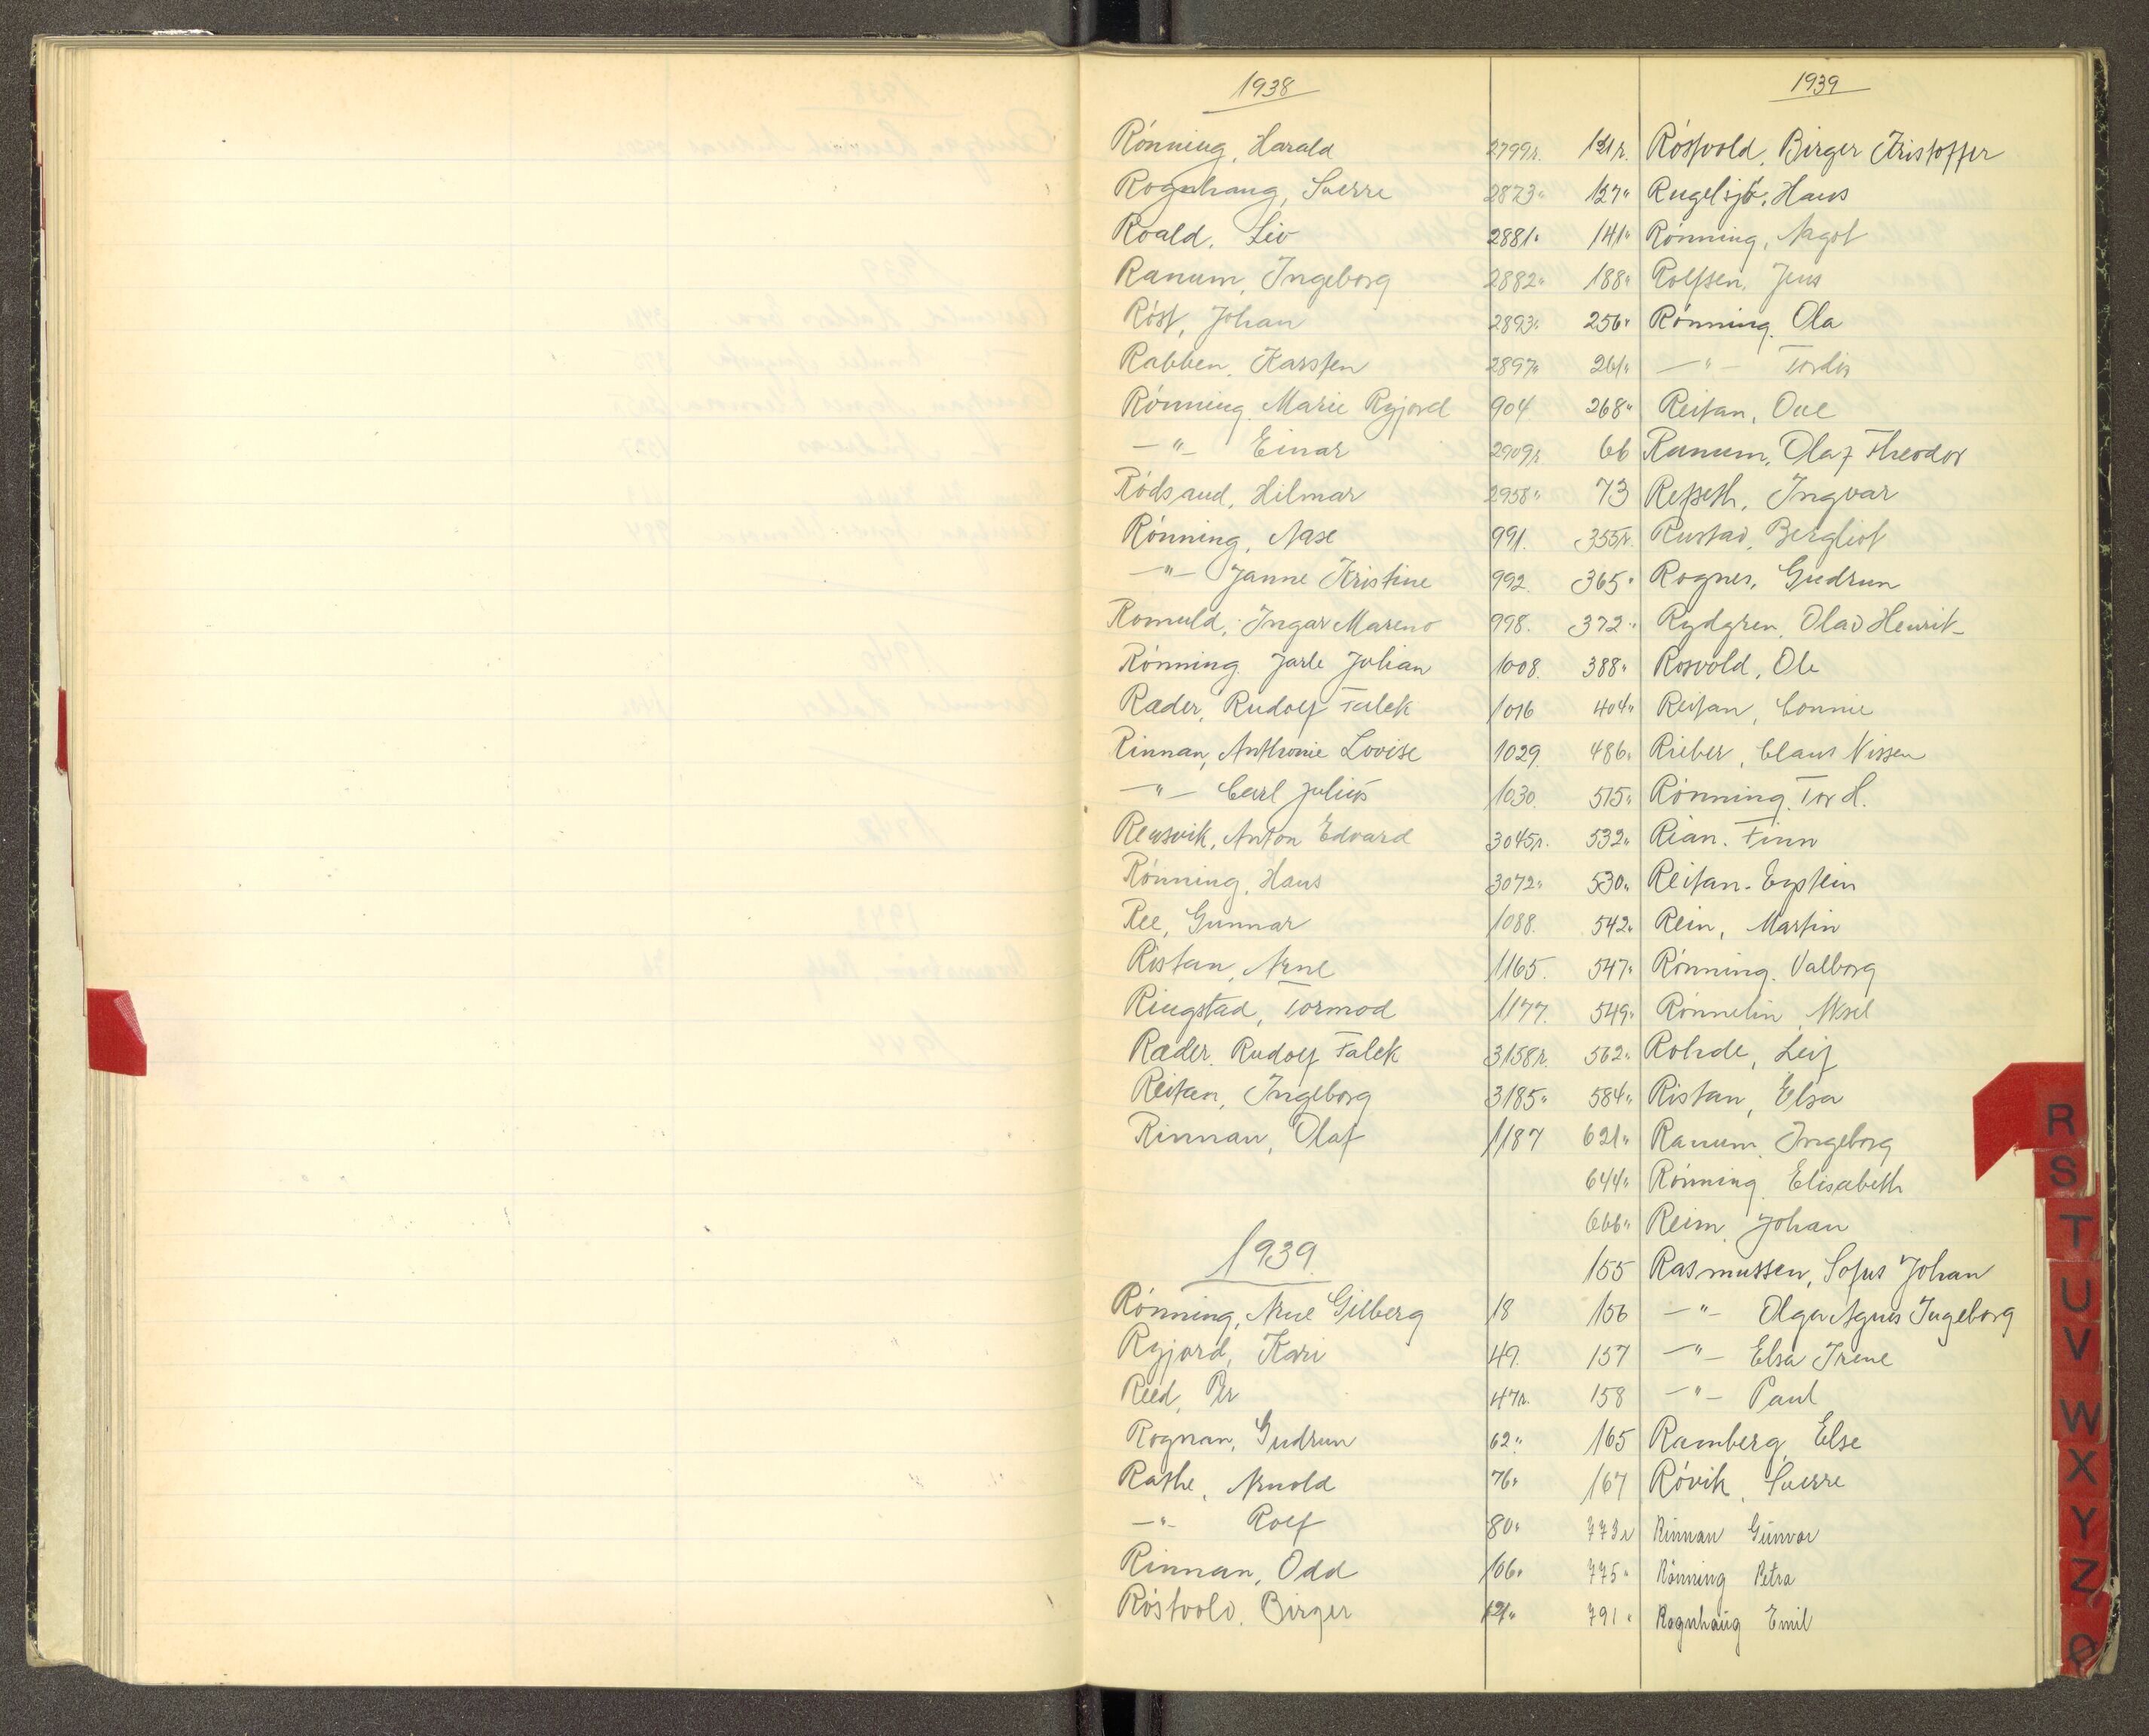 1938
Rönning, Harald 2799r.
Rognhaug, Sverre 2873"
Roald, Liv 2881"
Ranum, Ingeborg 2882"
Röst, Johan 2893"
Rabben, Karsten 2897"
Rönning, Marie Ryjord 904
—"— Einar 2909r.
Rödsand, Hilmar 2958"
Rönning, Aase 991.
—"— Janne Kristine 992.
Romuld, Ingar Mareno 998.
Rönning, Jarle Julian 1008.
Ræder, Rudolf Falck 1016
Rinnan, Anthonie Lovise 1029.
—"— Carl Julius 1030.
Rensvik, Anton Edvard 3045r.
Rönning, Hans 3072"
Ree, Gunnar 1088.
Ristan, Arne 1165.
Ringstad, Tormod 1177.
Ræder, Rudolf Falck 3158r.
Reitan, Ingeborg 3185"
Rinnan, Olaf 1187
1939.
Rönning, Arne Gilberg 18
Ryjord, Kari 49.
Reed, Per 47r.
Rognan, Gudrun 62"
Rathe, Arnold 76"
—"— Rolf 80"
Rinnan, Odd 106"
Röstvold, Birger 121"
1939
121r. Röstvold, Birger Kristoffer
127" Rugelsjö, Hans
141" Rönning, Aagot
188" Rolfsen, Jens
256" Rönning, Ola
261" —"— Tordis
268" Reitan, Ove
66 Ranum, Olaf Theodor
73 Repseth, Ingvar
355r. Rustad, Bergliot
365" Rognes, Gudrun
372" Rydgren, Olav Henrik
388" Rosvold, Ole
404" Reitan, Connie
486" Rieber, Claus Nissen
515" Rönning, Tor H.
532" Rian, Finn
530" Reitan, Eystein
542" Rein, Martin
547" Rönning, Valborg
549" Rönnelin, Aksel
562" Rohde, Leif
584" Ristan, Elsa
621" Ranum, Ingeborg
644" Rönning, Elisabeth
666" Reim, Johan
155 Rasmussen, Sofus Johan
156 —"— Olga Agnes Ingeborg
157 —"— Elsa Irene
158 —"— Paul
165 Ramberg, Else
167 Rövik, Sverre
773r Rinnan Gunvor
775" Rönning Petra
791" Rognhaug Emil
R
S
T
U
V
W
X
Y
Z
Ø